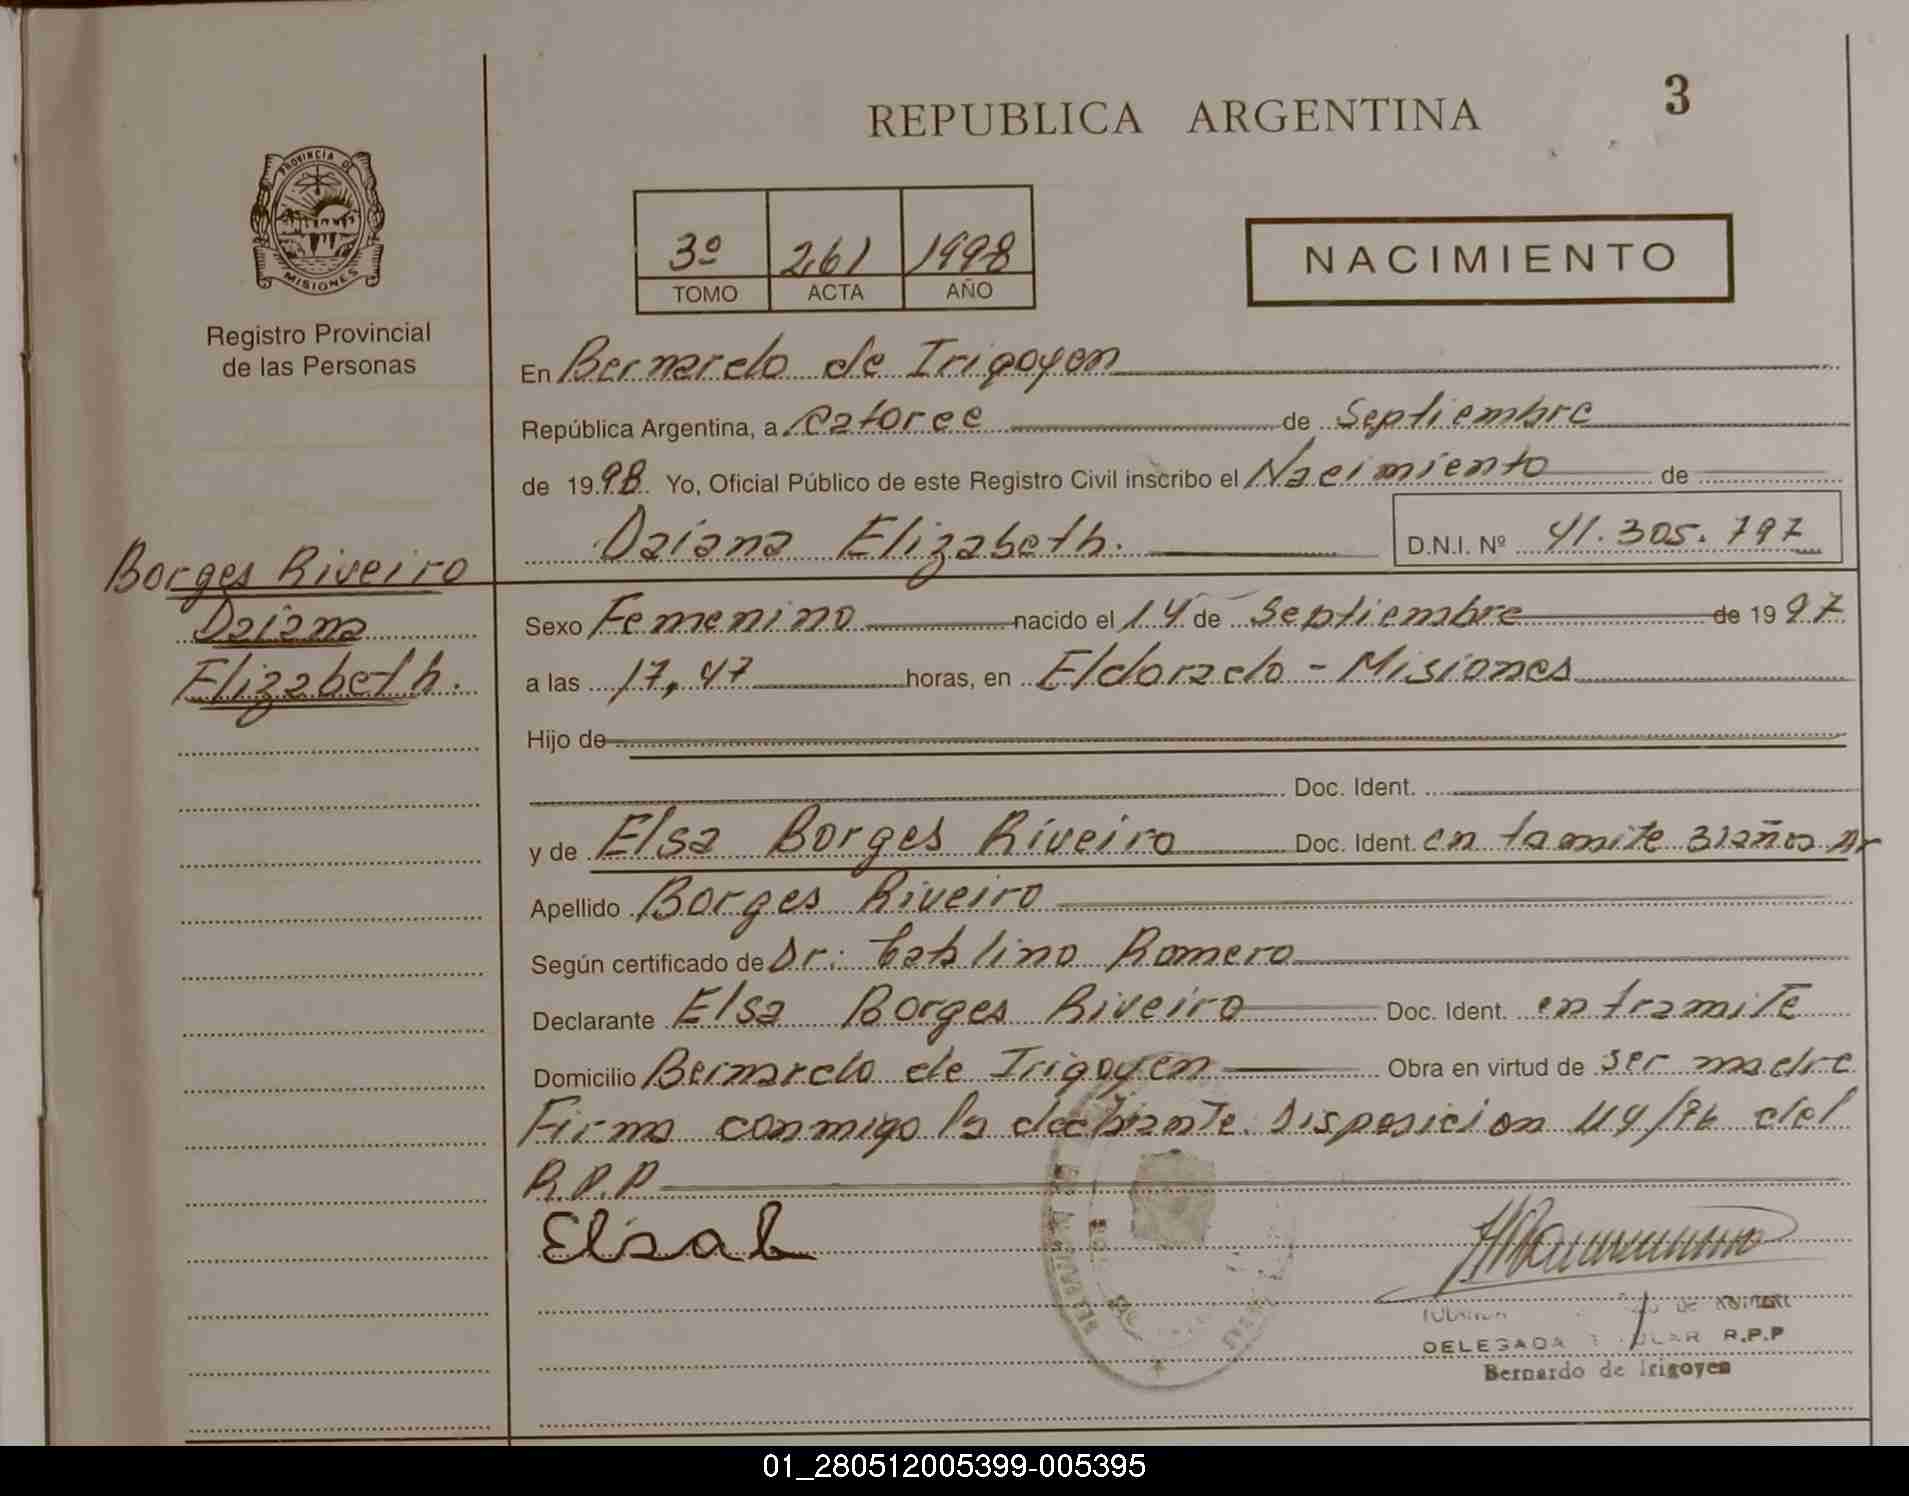 REPUBLICA ARGENTINA
3
PROVINCIA DE MISIONES
Registro Provincial
de las Personas
3º 261 1998
TOMO ACTA AÑO
NACIMIENTO
En Bernardo de Irigoyen
República Argentina, a catorce de Septiembre
de 1998 Yo, Oficial Público de este Registro Civil inscribo el Nacimiento de
Daiana Elizabeth. D.N.I. Nº 41.305.797
Borges Riveiro
Daiana
Elizabeth.
Sexo Femenino nacido el 14 de Septiembre de 1997
a las 17,47 horas, en Eldorado - Misiones
Hijo de
Doc. Ident.
y de Elsa Borges Riveiro Doc. Ident. en tamite 31 años Ar
Apellido Borges Riveiro
Según certificado de Dr: Romero
Declarante Elsa Borges Riveiro Doc. Ident. en tramite
Domicilio Bernardo de Irigoyen Obra en virtud de ser madre
Firma conmigo la declarante. Disposicion 114/96 del
R.P.P
Elsa b
DELEGADA R.P.P
Bernardo de Irigoyen
01_280512005399-005395